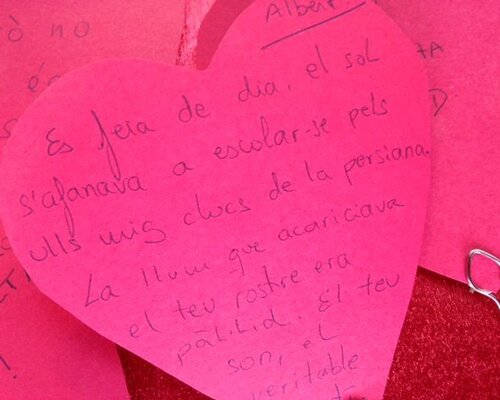 ò no
é
Albert.
Es feia de dia, el sol
s'afanava a escolar-se pels
ulls mig clucs de la persiana.
La llum que acariciava
el teu rostre era
pàl·lid. El teu
son, el
veritable
TA
D